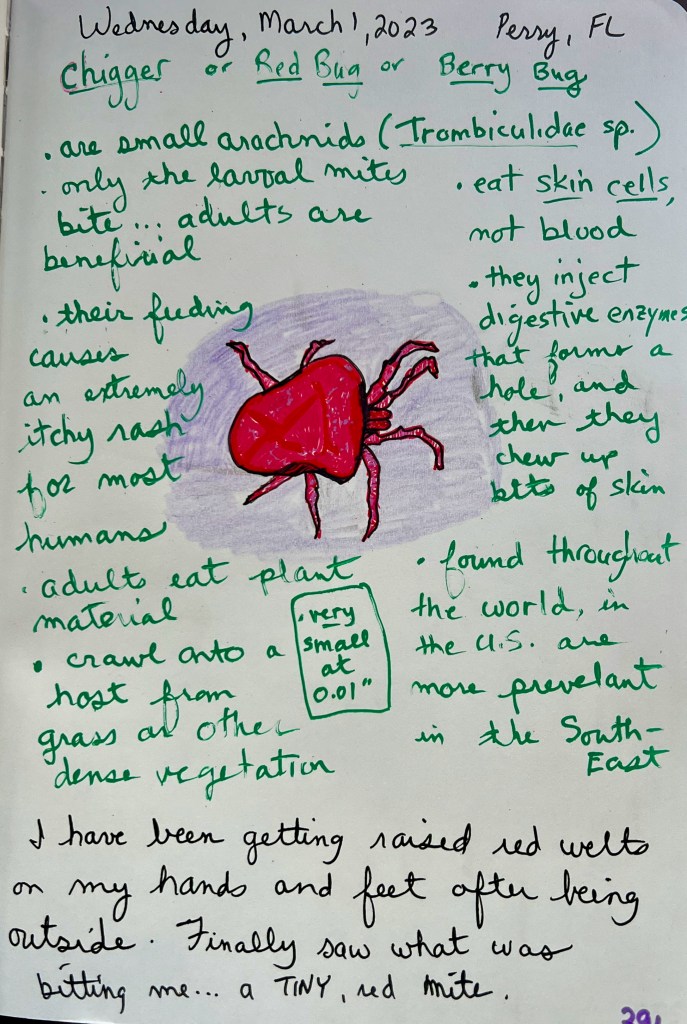 Wednesday, March 1, 2023 Perry, FL
Chigger or Red Bug or Berry Bug
. are small arachnids (Trombiculidae sp.)
. only the larval mites
bite... adults are
beneficial
. their feeding
causes
an extremely
itchy rash
for most
humans
. adults eat plant
material
. crawl onto a
host from
grass or other
dense vegetation
. very
small
at
0.01"
. eat skin cells,
not blood
. they inject
digestive enzymes
that forms a
hole, and
then they
chew up
bits of skin
. found throughout
the world, in
the U.S. are
more prevelant
in the South-
East
I have been getting raised red welts
on my hands and feet after being
outside. Finally saw what was
bitting me... a TINY, red mite.